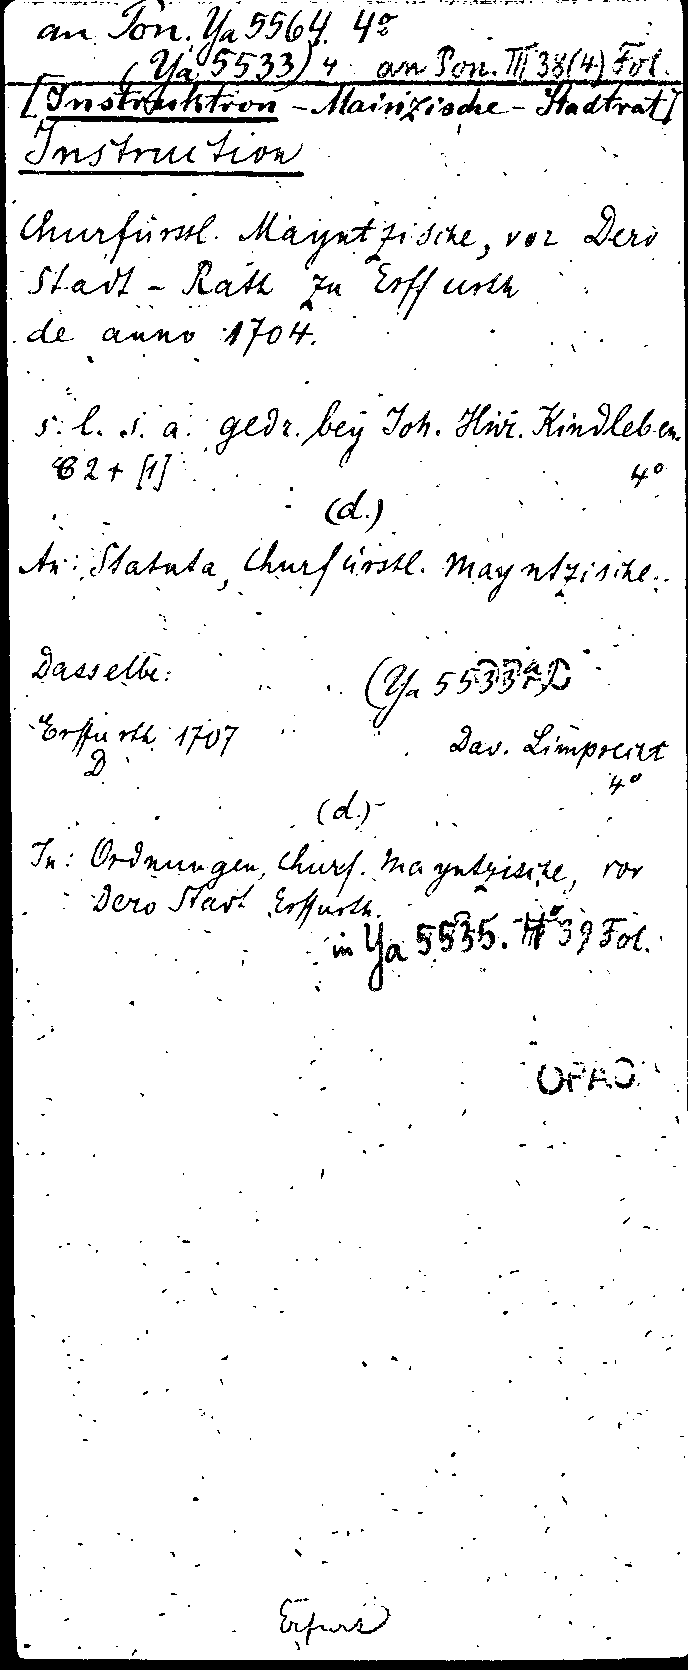 an Pon. Ya 5564. 4°
(Ya 5533) 4 an Pon. III 38(4) Fol.
[Instruktion - Mainzische - Stadtrat]
Instruction
Churfürstl. Mayntzische, vor Dero
Stadt - Rath zu Erffurth
de anno 1704.
s. l. s. a. gedr. bey Joh. Hnr. Kindleben.
C 2 + [1] 4°
(d.)
An: Statuta, Churfürstl. Mayntzische..
Dasselbe: (Ya 5533
Erffurth 1707 Dav. Limprecht
D 4°
(d.)
In: Ordnungen, Churf. Mayntzische, vor
Dero Stadt Erffurth.
in Ya 5535. 39 Fol.
OPAC
Erfurt